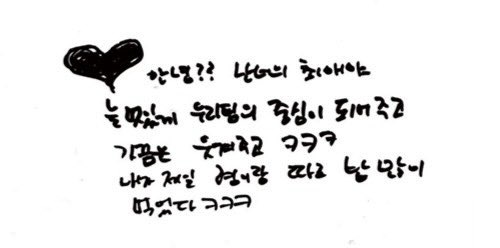 안녕?? 난 너의 최애야
늘 멋있게 우리팀의 중심이 되어주고
가끔은 웃겨주고 ㅋㅋㅋ
나자 제일 현이랑 따로 밥 많이
먹었다 ㅋㅋㅋ